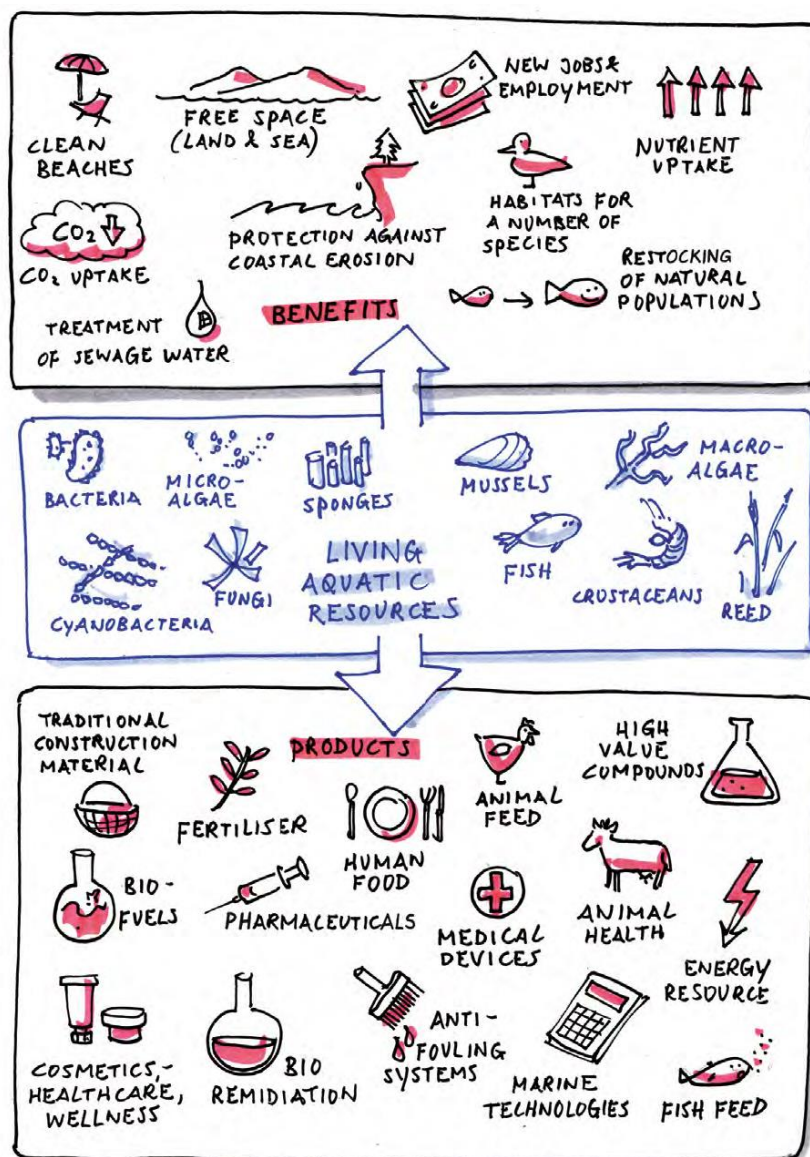 CLEAN
BEACHES
FREE SPACE
(LAND & SEA)
NEW JOBS &
EMPLOYMENT
NUTRIENT
UPTAKE
CO₂
CO₂ UPTAKE
PROTECTION AGAINST
COASTAL EROSION
HABITATS FOR
A NUMBER OF
SPECIES
RESTOCKING
OF NATURAL
POPULATIONS
TREATMENT
OF SEWAGE WATER
BENEFITS
BACTERIA
MICRO-
ALGAE
SPONGES
MUSSELS
MACRO-
ALGAE
CYANOBACTERIA
FUNGI
LIVING
AQUATIC
RESOURCES
FISH
CRUSTACEANS
REED
TRADITIONAL
CONSTRUCTION
MATERIAL
PRODUCTS
FERTILISER
HUMAN
FOOD
ANIMAL
FEED
HIGH
VALUE
COMPOUNDS
BIO-
FUELS
PHARMACEUTICALS
MEDICAL
DEVICES
ANIMAL
HEALTH
ENERGY
RESOURCE
COSMETICS,-
HEALTHCARE,
WELLNESS
BIO
REMIDIATION
ANTI-
FOULING
SYSTEMS
MARINE
TECHNOLOGIES
FISH FEED